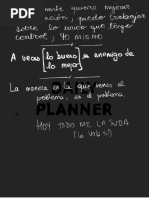 mente quiero mejorar
ación, puedo trabajar
sobre lo único que tengo
control, yo mismo
A veces [lo bueno] es enemigo de
[lo mejor]
La manera en la que vemos el
problema, es el problema.
PLANNER
HOY TODO ME LA SUDA